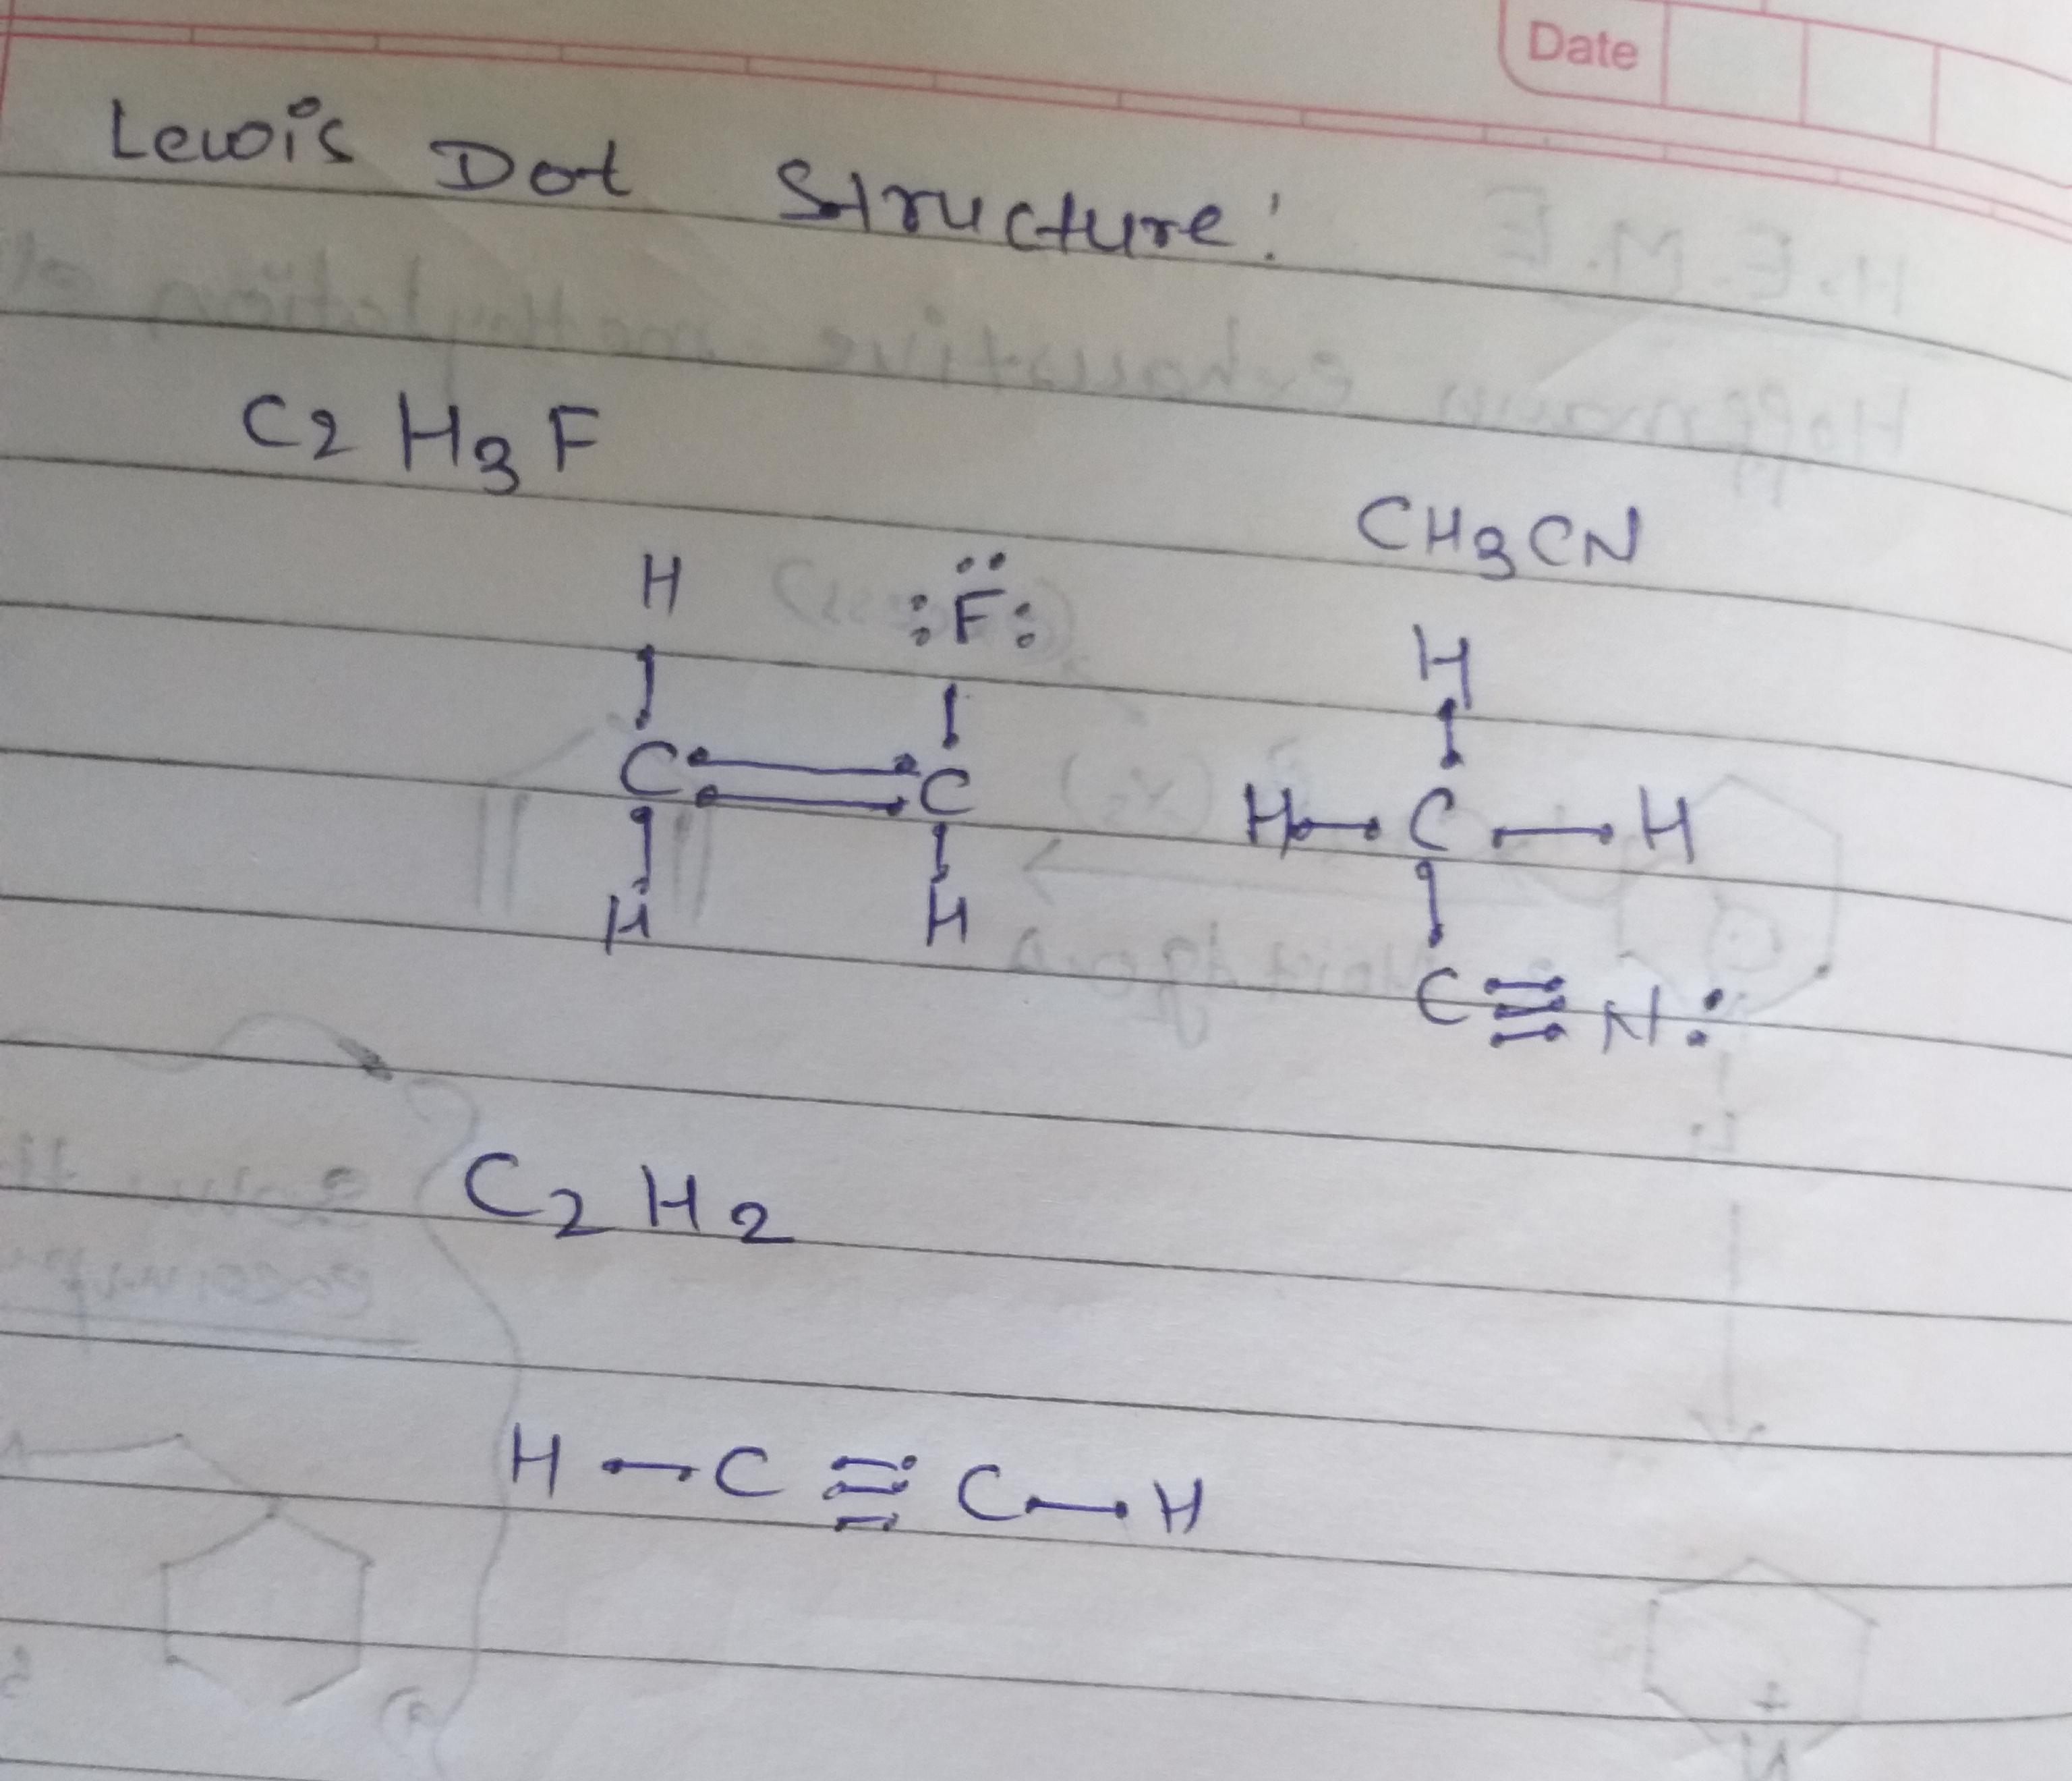 Date
Lewis Dot Structure:
C2 H3 F
CH3CN
H :F̈:
H
C = C
H — C — H
H H
C ≡ N:
C2 H2
H — C ≡ C — H